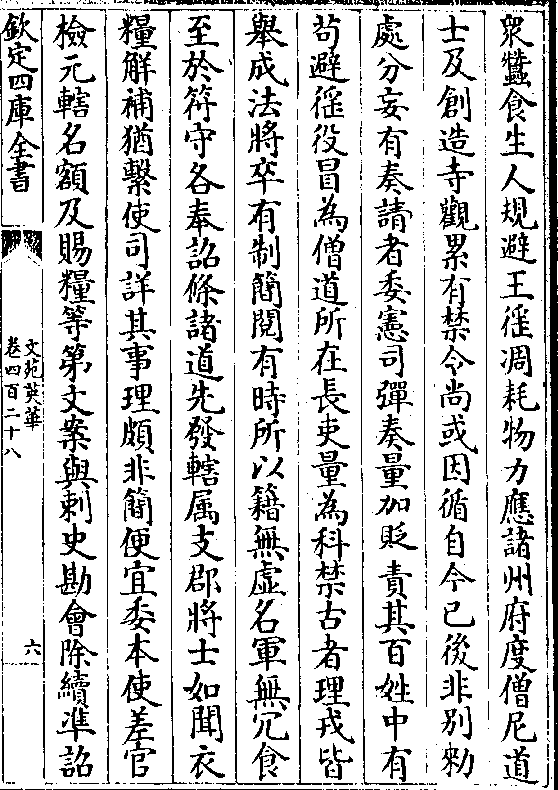 衆蠶食生人規避王徭凋耗物力應諸州府度僧尼道
士及創造寺觀累有禁令尚或因循自今已後非别勅
處分妄有奏請者委憲司彈奏量加貶責其百姓中有
苟避徭役冒為僧道所在長吏量為科禁古者理戎皆
舉成法將卒有制簡閲有時所以籍無虚名軍無冗食
至於符守各奉詔條諸道先發轄属支郡將士如聞衣
糧解補猶繫使司詳其事理頗非簡便宜委本使差官
檢元轄名額及賜糧等第文案與刺史勘會除續凖詔
欽定四庫全書
文苑英華
卷四百二十八
六